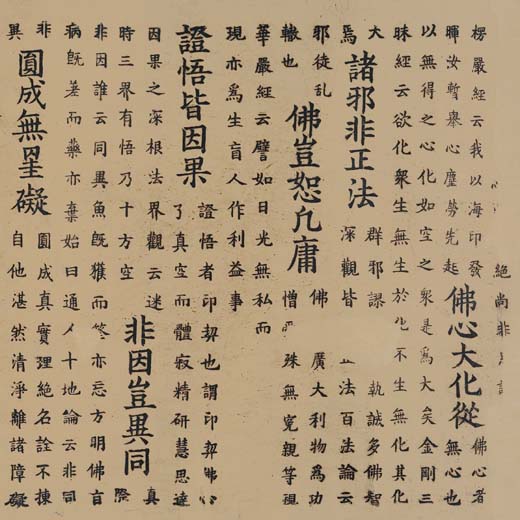 絕尚非
楞嚴經云我以海印發
暉汝暫舉心塵勞先起
佛心大化從
佛心者
無心也
以無得之心化如空之衆是爲大矣金剛三
昧經云欲化衆生無生於化不生無化其化
大
焉
諸邪非正法
群邪謬執誠多佛智
深觀皆法百法論云
邪徒亂
轍也
佛豈恕凡庸
佛廣大利物爲功
憎殊無寃親等現
華嚴經云譬如日光無私而
現亦爲生盲人作利益事
證悟皆因果
證悟者印契也謂印契佛心
了真空而體寂精研慧思達
因果之深根法界觀云迷
時三界有悟乃十方空
非因豈異同
真
際
非因誰云同異魚既獲而筌亦忘方明佛旨
病既差而藥亦棄始曰通人十地論云非同
非
異
圓成無罣礙
圓成真實理絕名詮不揀
自他湛然清淨離諸障礙